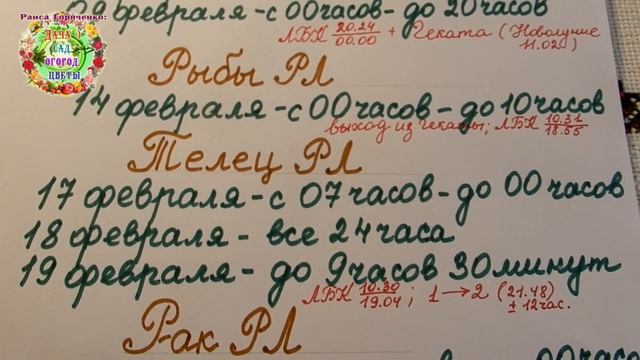 Раиса Горяченко:
ДАЧА
САД
ОГОРОД
ЦВЕТЫ
09 февраля - с 00часов - до 20часов
ЛБК 20.24/00.00 + Геката (Новолуние 11.02)
Рыбы РЛ
14 февраля - с 00часов - до 10часов
выход из Гекаты; ЛБК 10.31/18.55
Телец РЛ
17 февраля - с 07часов - до 00часов
18 февраля - все 24часа
19 февраля - до 9часов 30минут
ЛБК 10.30/19.04; 1→2 (21.48) ± 12час.
Рак РЛ